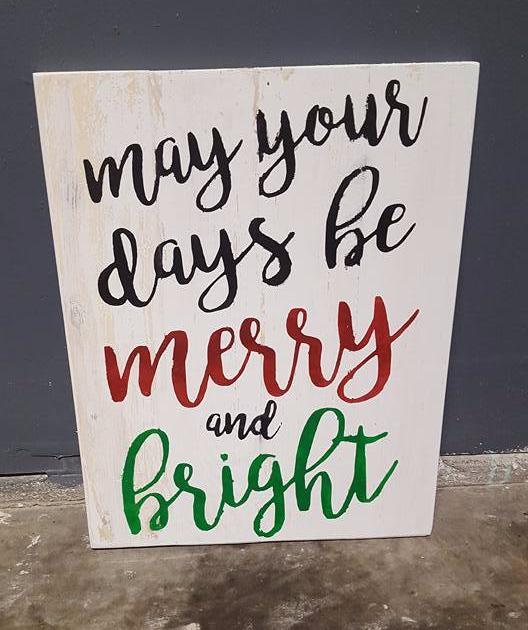 may your
days be
merry
and
bright